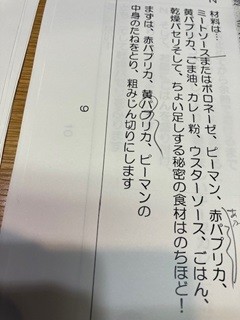 材料は…
ミートソースまたはボロネーゼ、ピーマン、赤パプリカ、
黄パプリカ、ごま油、カレー粉、ウスターソース、ごはん、
乾燥パセリそして、ちょい足しする秘密の食材はのちほど！
まずは、赤パプリカ、黄パプリカ、ピーマンの
中身のたねをとり、粗みじん切りにします
9